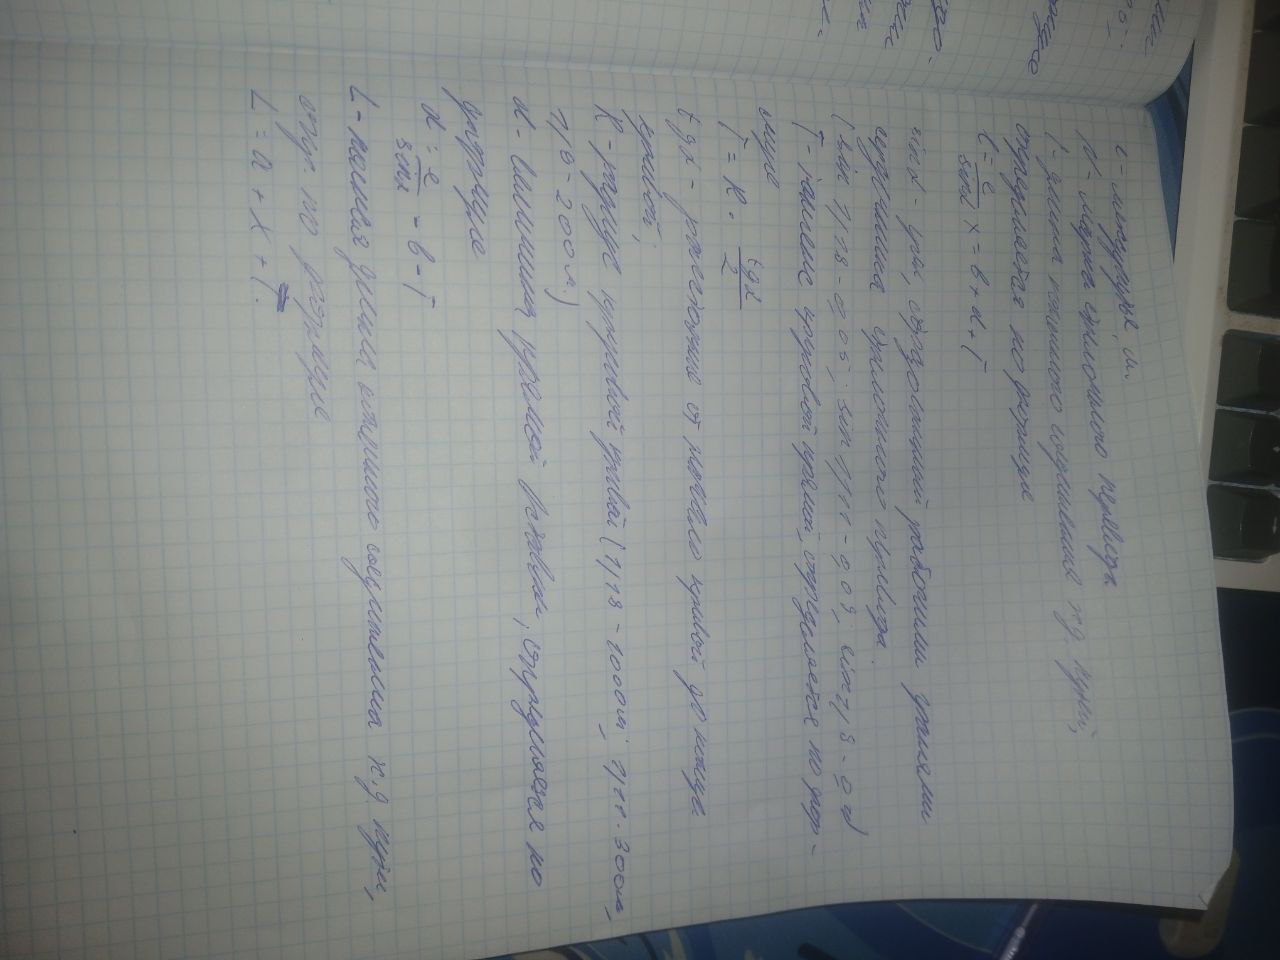 e - междупутье, м.
N - марка стрелочного перевода
l - длина конечного соединения ж.д. путей,
определяется по формуле
l = e/sinα x = b + d + T
sinα - угол, образованный рабочими гранями
сердечника стрелочного перевода.
(sin 1/18 - 0,05; sin 1/11 - 0,09, sin 1/9 - 0,11)
T - тангенс круговой кривой, определяется по фор-
муле
T = R · tgα/2
tgα - расстояние от начала кривой до конца
кривой;
R - радиус круговой кривой (1/18 - 1000м; 1/11 - 300м,
1/9 - 200м.)
d - величина прямой вставки, определяется по
формуле
d = e/sinα - b - T
L - полная длина конечного соединения ж.д пути,
опр. по формуле
L = a + x + T.